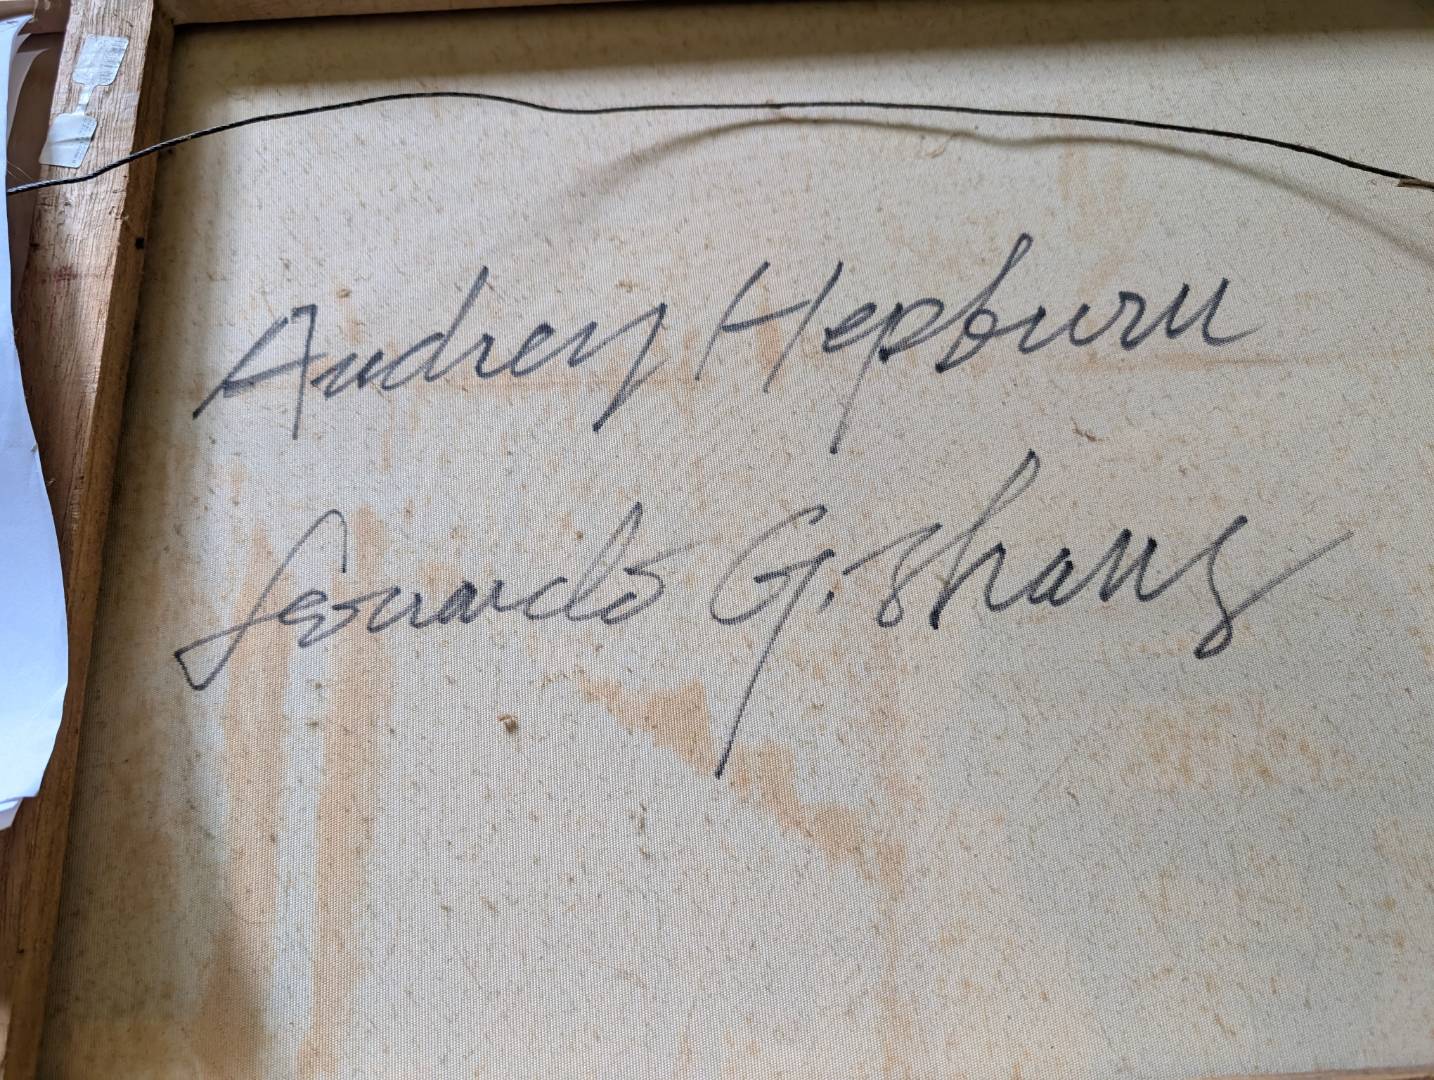 Audrey Hepburn
Leonardo G. Shang